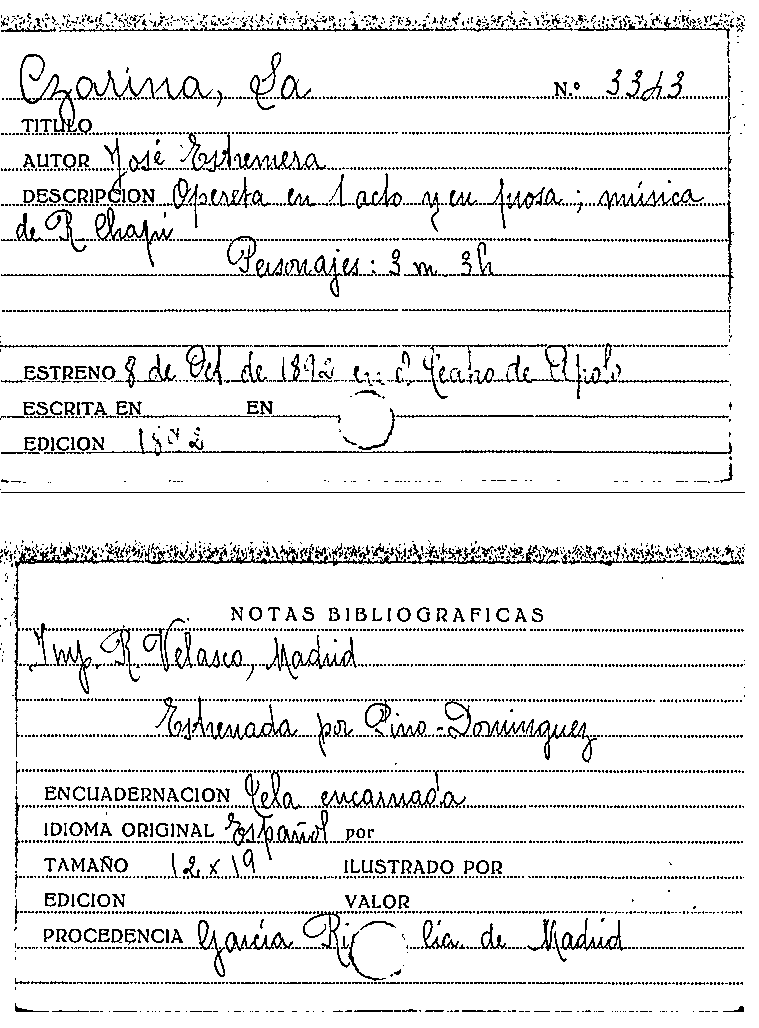 Czarina, La N.º 3343
TITULO
AUTOR José Estremera
DESCRIPCION Opereta en 1 acto y en prosa; música
de R Chapí
Personajes: 3 m 3h
ESTRENO 8 de Oct. de 1892 en el Teatro de Apolo
ESCRITA EN EN
EDICION 1892
NOTAS BIBLIOGRAFICAS
Imp. R. Velasco, Madrid
Estrenada por Pino-Dominguez
ENCUADERNACION Tela encarnada
IDIOMA ORIGINAL Español por
TAMAÑO 12 x 19 ILUSTRADO POR
EDICION VALOR
PROCEDENCIA García de Madrid